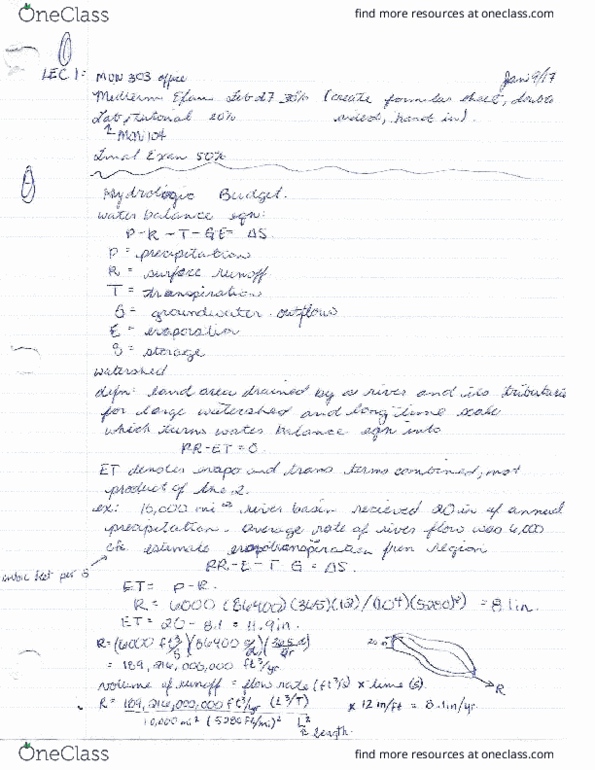 OneClass
find more resources at oneclass.com
LEC 1: MON 303 office Jan 9/17
Midterm Exam Feb 27 30% (create formula sheet, double
Lab/tutorial 20% sided, hand in).
MON 104
Final Exam 50%
Hydrologic Budget.
water balance eqn:
P-R-T-G-E= ΔS
P = precipitation
R = surface runoff
T = transpiration
G = groundwater outflow
E = evaporation
S = storage
watershed
defn: land area drained by a river and its tributaries
for large watershed and long time scale
which turns water balance eqn into
P-R-ET=0.
ET denotes evapo and trans terms combined, not
product of the 2.
ex: 10,000 mi² river basin recieved 20 in of annual
precipitation. average rate of river flow was 6,000
cfs. estimate evapotranspiration from region
cubic feet per s
P-R-E-T-G = ΔS.
ET= P-R.
R = 6000 (86400)(365)(12)/(10⁴)(5280)²) = 8.1in.
ET = 20 - 8.1 = 11.9in.
R=(6000 ft³/s)(86400 s/d)(365 d/yr)
20 in
= 189,216,000,000 ft³/yr.
R
volume of runoff = flow rate (ft³/s) x time (s).
R = 189,216,000,000 ft³/yr (L³/T) x 12 in/ft = 8.1in/yr
10,000 mi² (5280 ft/mi)² L²
length.
OneClass
find more resources at oneclass.com